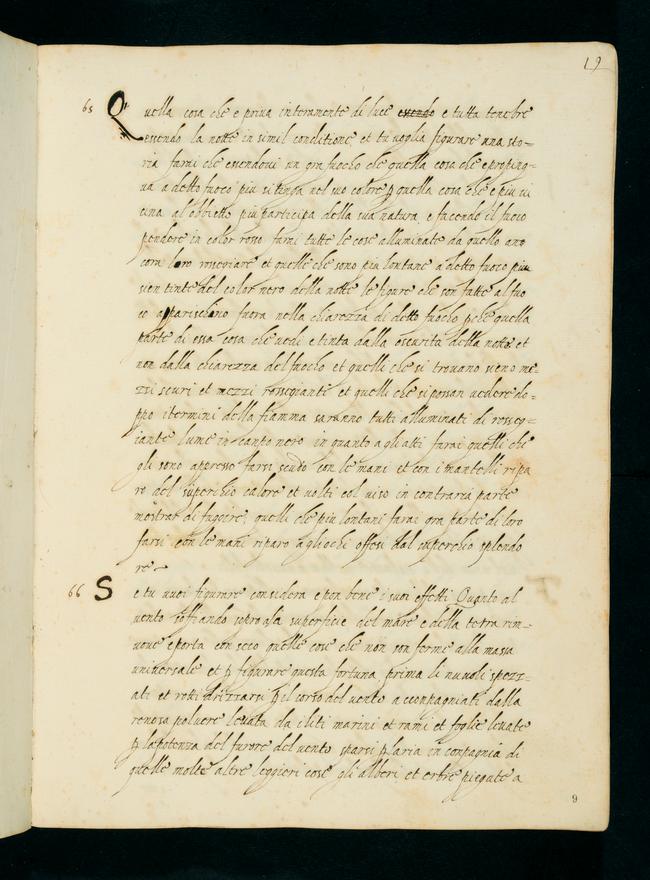 19
65 Quella cosa che e priva interamente di luce essendo e tutta tenebre
essendo la notte in simil conditione et tu voglia figurare una sto=
ria farai che essendovi un gra fuocho che quella cosa che e proping=
va a detto fuoco piu si tinga nel suo colore p quella cosa che e piu vi
cina al obbietto piu participa della sua natura e facendo il fuoco
pendere in color rosso farai tutte le cose alluminate da quello anc
cora loro rosseriare et quelle che sono piu lontane a detto fuoco piu
sien tinte del color nero della notte le figure che son fatte al fuo
co apparischino fuora nella chiarezza di detto fuocho pche quella
parte di essa cosa che vedi e tinta dalla oscurita della notte et
non dalla chiarezza del fuocho et quelli che si trovano sieno me=
zzi scuri et mezzi rossegianti et quelli che si possan vedere do=
ppo i termini della fiamma saranno tutti alluminati di rosseg=
iante lume in canpo nero in quanto agli atti farai quelli che
gli sono appresso farsi scudo con le mani et con i mantelli ripa
ro del superchio calore et volti col viso in contraria parte
mostrar di fuggire, quelli che piu lontani farai gra parte di loro
farsi con le mani riparo agliochi offesi dal superchio splendo
re
66 Se tu vuoi figurare considera e pon bene i suoi effetti Quanto al
vento soffiando sopra la superficie del mare e della terra rim=
vove e porta con seco quelle cose che non son ferme alla massa
universale et p figurare questa fortuna prima li nuvoli spezz=
ati et rotti drizzarsi p il corso del vento accompagniati dalla
renosa polvere levata da i liti marini et rami et foglie levate
p la potenza del furore del vento sparsi p laria in conpagnia di
quelle molte altre leggieri cose gli alberi et erbe piegate a
9